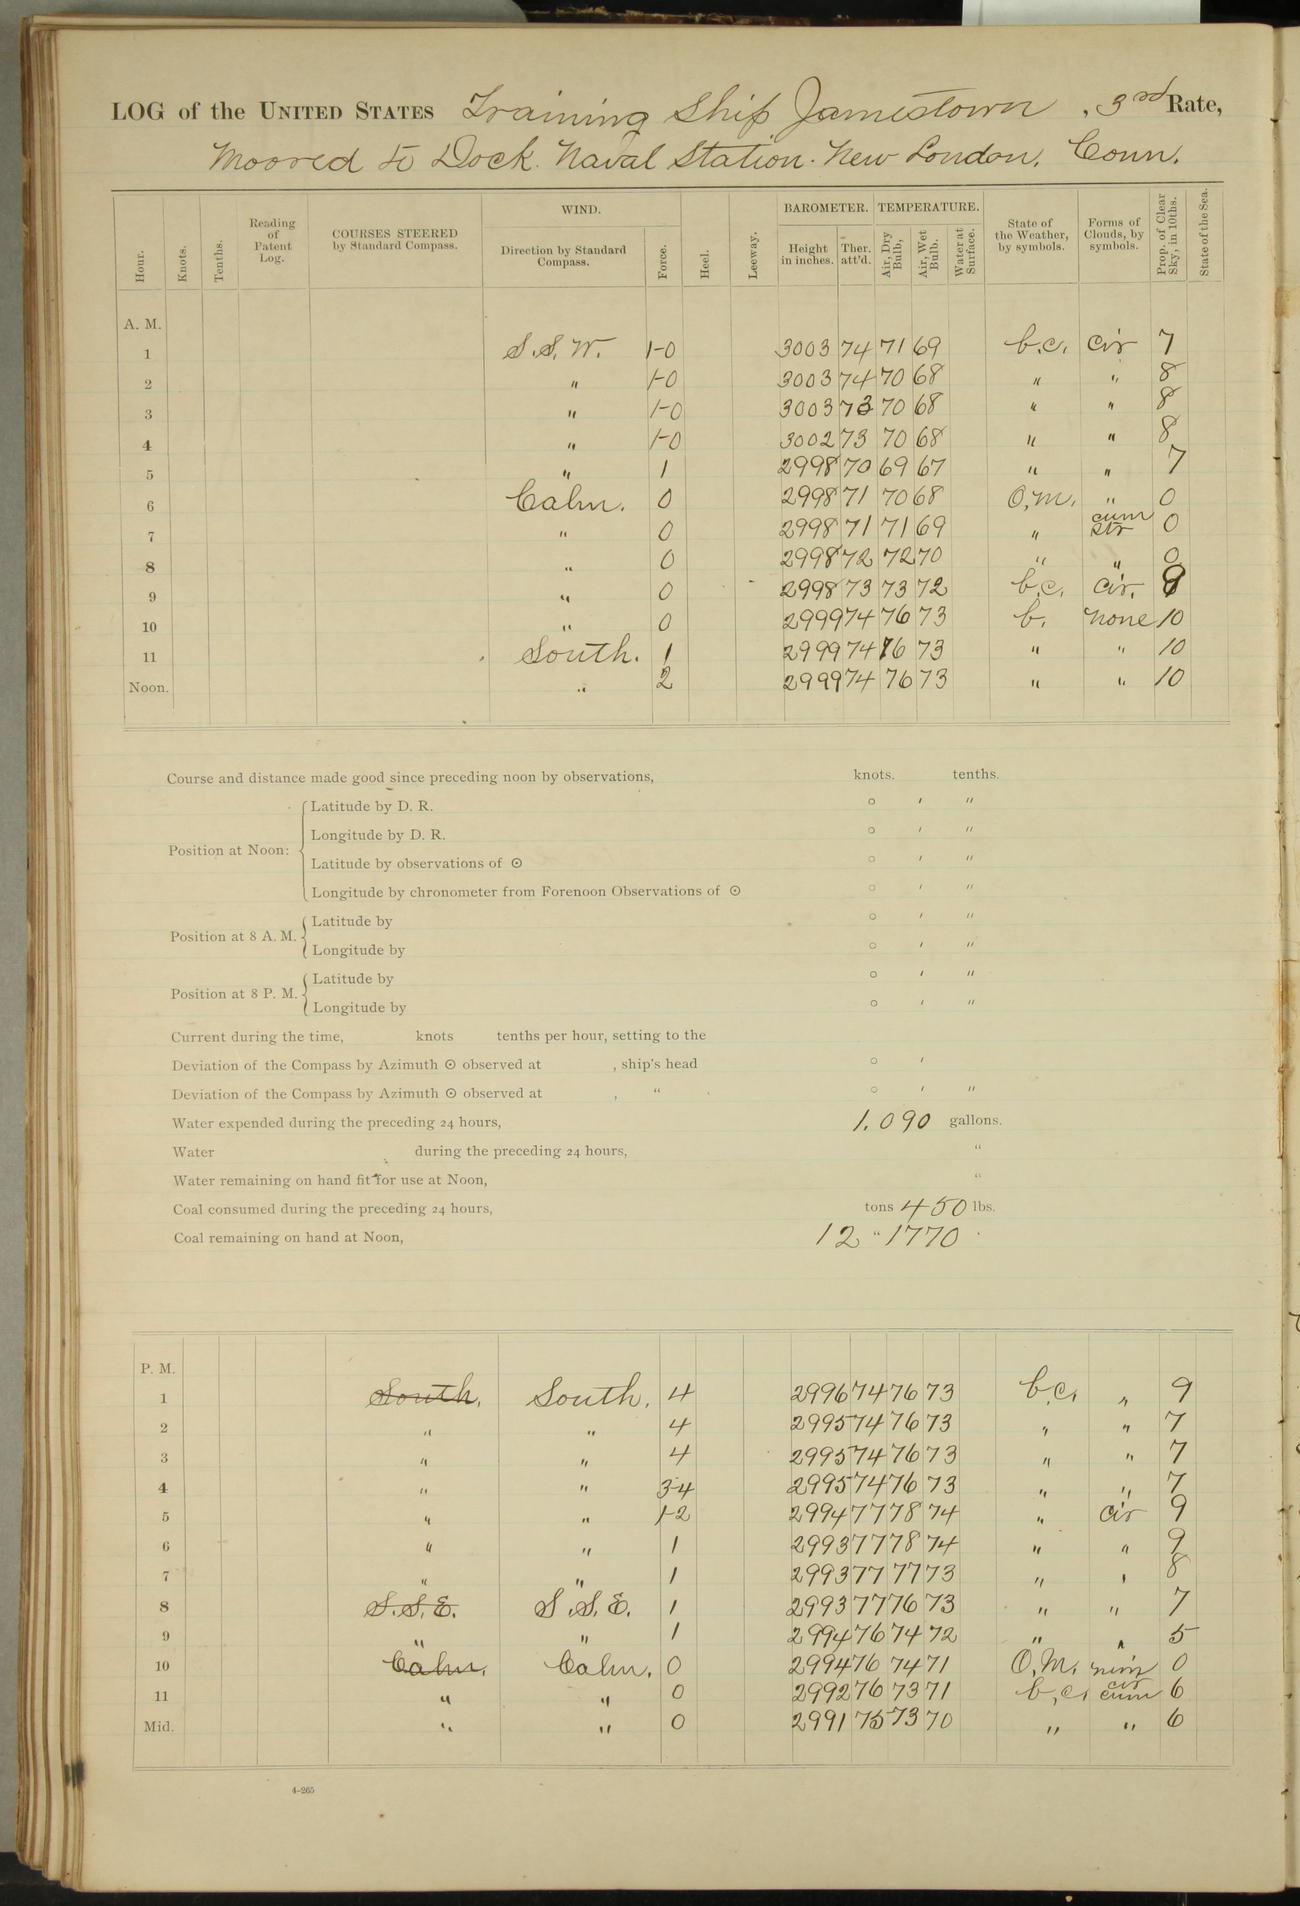 LOG of the UNITED STATES Training Ship Jamestown, 3rd Rate,
Moored to Dock. Naval Station. New London, Conn.
WIND. BAROMETER. TEMPERATURE.
Hour. Knots. Tenths. Reading of Patent Log. COURSES STEERED by Standard Compass. Direction by Standard Compass. Force. Heel. Leeway. Height in inches. Ther. att'd. Air, Dry Bulb, Air, Wet Bulb. Water at Surface. State of the Weather, by symbols. Forms of Clouds, by symbols. Prop. of Clear Sky, in 10ths. State of the Sea.
A. M.
1 S.S.W. 1-0 3003 74 71 69 b.c. cir 7
2 " 1-0 3003 74 70 68 " " 8
3 " 1-0 3003 73 70 68 " " 8
4 " 1-0 3002 73 70 68 " " 8
5 " 1 2998 70 69 67 " " 7
6 Calm. 0 2998 71 70 68 O.M. " 0
7 " 0 2998 71 71 69 " cum str 0
8 " 0 2998 72 72 70 " " 0
9 " 0 2998 73 73 72 b.c. cir.
10 " 0 2999 74 76 73 b. none 10
11 South. 1 2999 74 76 73 " " 10
Noon. " 2 2999 74 76 73 " " 10
Course and distance made good since preceding noon by observations, knots. tenths.
Position at Noon:
Latitude by D. R. ° ′ ″
Longitude by D. R. ° ′ ″
Latitude by observations of ⊙ ° ′ ″
Longitude by chronometer from Forenoon Observations of ⊙ ° ′ ″
Position at 8 A. M.
Latitude by ° ′ ″
Longitude by ° ′ ″
Position at 8 P. M.
Latitude by ° ′ ″
Longitude by ° ′ ″
Current during the time, knots tenths per hour, setting to the
Deviation of the Compass by Azimuth ⊙ observed at , ship's head ° ′
Deviation of the Compass by Azimuth ⊙ observed at , " ° ′ ″
Water expended during the preceding 24 hours, 1.090 gallons.
Water during the preceding 24 hours, "
Water remaining on hand fit for use at Noon, "
Coal consumed during the preceding 24 hours, tons 450 lbs.
Coal remaining on hand at Noon, 12 " 1770
P. M.
1 South. South. 4 2996 74 76 73 b.c. " 9
2 " " 4 2995 74 76 73 " " 7
3 " " 4 2995 74 76 73 " " 7
4 " " 3-4 2995 74 76 73 " " 7
5 " " 1-2 2994 77 78 74 " cir 9
6 " " 1 2993 77 78 74 " " 9
7 " " 1 2993 77 77 73 " " 8
8 S.S.E. S.S.E. 1 2993 77 76 73 " " 7
9 " " 1 2994 76 74 72 " " 5
10 Calm. Calm. 0 2994 76 74 71 O.M. nim 0
11 " " 0 2992 76 73 71 b.c. cir cum 6
Mid. " " 0 2991 75 73 70 " " 6
4-265